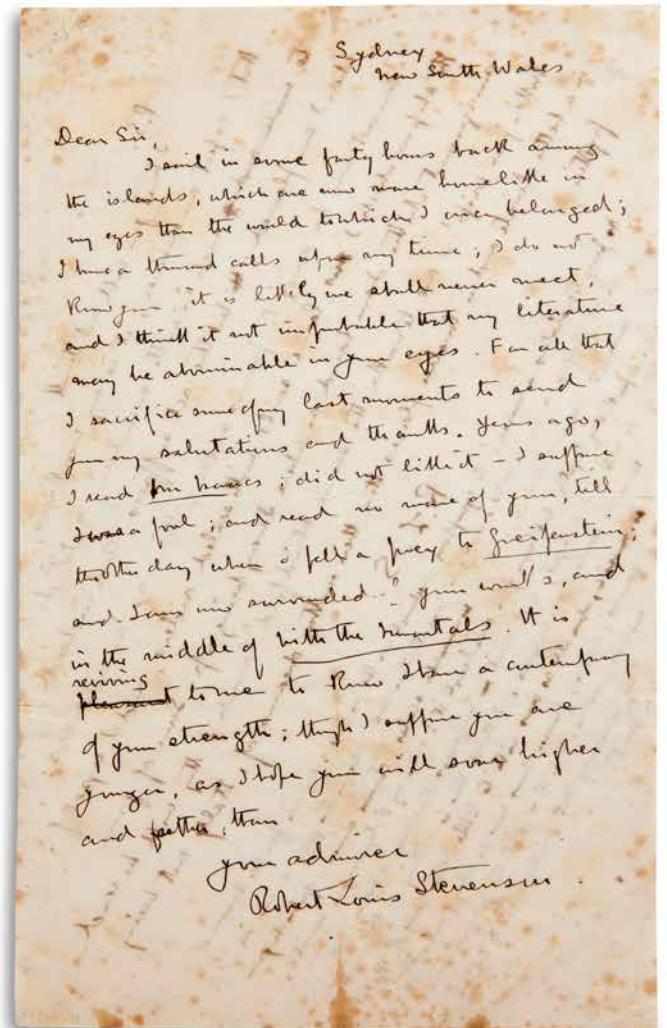 Sydney
New South Wales
Dear Sir,
I sail in some forty hours back among
the islands, which are now more homelike in
my eyes than the world to which I once belonged;
I have a thousand calls upon my time; I do not
know you it is likely we shall never meet,
and I think it not improbable that my literature
may be abominable in your eyes. For all that
I sacrifice some of my last moments to send
you my salutations and thanks. Years ago,
I read Mr Isaacs; did not like it - I suppose
I was a fool; and read no more of you, till
the other day when I fell a prey to Greifenstein;
and I am now surrounded your works, and
in the middle of With the Immortals. It is
reviving
pleasant to me to know I have a contemporary
of your strength; though I suppose you are
younger, as I hope you will soar higher
and farther, than
your admirer
Robert Louis Stevenson.